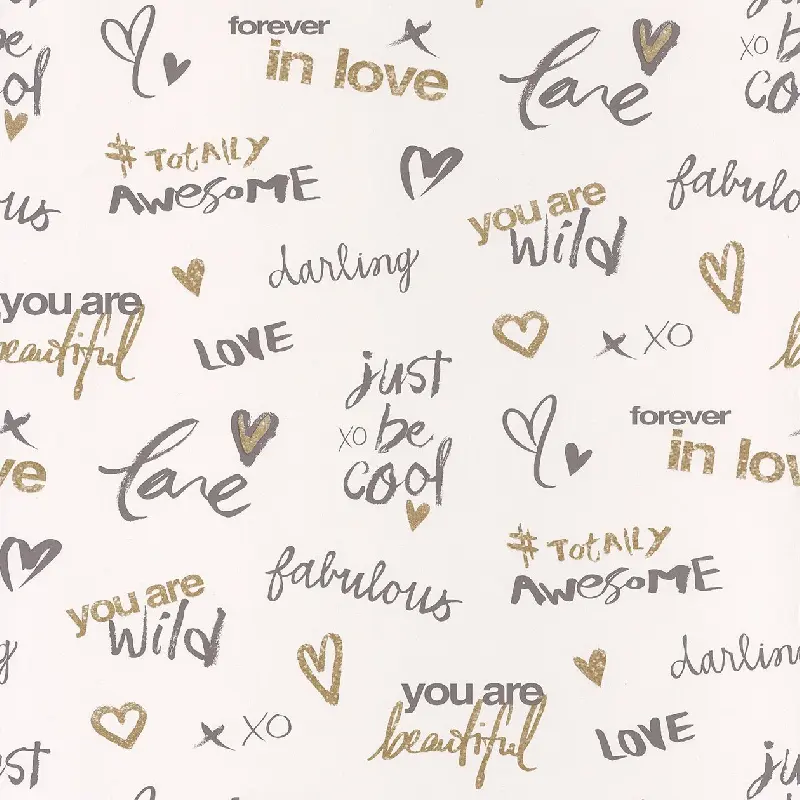 forever
in love
Love
be
cool
xo
# Totally
Awesome
fabulous
you are
wild
darling
you are
beautiful
LOVE
x XO
just
xo be
cool
Love
forever
in love
# Totally
Awesome
fabulous
you are
wild
darling
you are
beautiful
LOVE
x XO
just